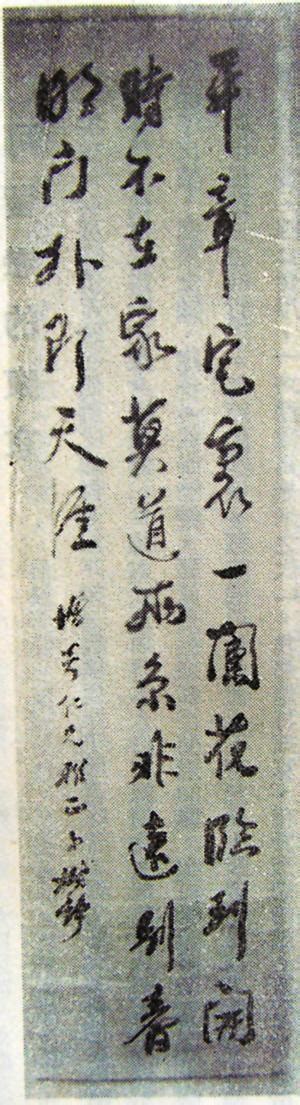 平章宅裏一闌花臨到開
時不在家莫道兩京非遠別春
明門外即天涯 仁兄雅正